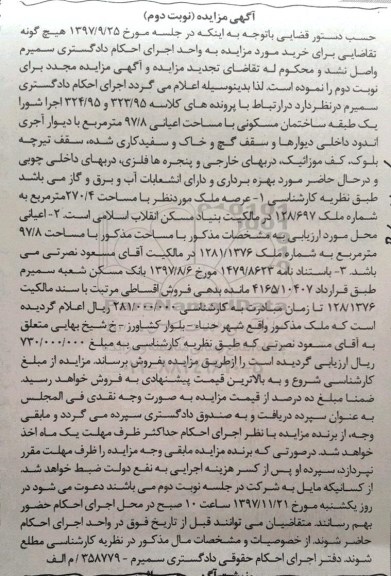 آگهی مزایده (نوبت دوم)
حسب دستور قضایی باتوجه به اینکه در جلسه مورخ ۱۳۹۷/۹/۲۵ هیچ گونه
تقاضایی برای خرید مورد مزایده به واحد اجرای احکام دادگستری سمیرم
واصل نشد و محکوم له تقاضای تجدید مزایده و آگهی مزایده مجدد برای
نوبت دوم را نموده است. لذا بدینوسیله اعلام می گردد اجرای احکام دادگستری
سمیرم درنظردارد درارتباط با پرونده های کلاسه ۳۲۳/۹۵ و ۳۲۴/۹۵ اجرا شورا
یک طبقه ساختمان مسکونی با مساحت اعیانی ۹۷/۸ مترمربع با دیوار آجری
اندود داخلی دیوارها و سقف گچ و خاک و سفیدکاری شده، سقف تیرچه
بلوک، کف موزائیک، دربهای خارجی و پنجره ها فلزی، دربهای داخلی چوبی
و درحال حاضر مورد بهره برداری و دارای انشعابات آب و برق و گاز می باشد
طبق نظریه کارشناسی ۱- عرصه ملک موردنظر با مساحت ۲۷۰/۴ مترمربع به
شماره ملک ۱۲۸/۶۹۷ در مالکیت بنیاد مسکن انقلاب اسلامی است. ۲- اعیانی
محل مورد ارزیابی به مشخصات مذکور با مساحت مذکور با مساحت ۹۷/۸
مترمربع به شماره ملک ۱۲۸۱/۱۳۷۶ در مالکیت آقای مسعود نصرتی می
باشد. ۳- باستناد نامه ۱۴۷۹/۸۶۲۳ مورخ ۱۳۹۷/۸/۶ بانک مسکن شعبه سمیرم
طبق قرارداد ۴۱۶۵/۱۰۴۰۷ مانده بدهی فروش اقساطی مرتبت با سند مالکیت
۱۲۸/۱۳۷۶ تا زمان مبادرت به کارشناسی ۲۸۱/۰۰۰/۰۰۰ ریال اعلام گردیده
است که ملک مذکور واقع شهر حناء- بلوار کشاورز- خ شیخ بهایی متعلق
به آقای مسعود نصرتی که طبق نظریه کارشناسی به مبلغ ۷۳۰/۰۰۰/۰۰۰
ریال ارزیابی گردیده است را ازطریق مزایده بفروش برساند. مزایده از مبلغ
کارشناسی شروع و به بالاترین قیمت پیشنهادی به فروش خواهد رسید.
ضمنا مبلغ ده درصد از قیمت مزایده به صورت وجه نقدی فی المجلس
به عنوان سپرده دریافت و به صندوق دادگستری سپرده می گردد و مابقی
وجه، از برنده مزایده با نظر اجرای احکام حداکثر ظرف مهلت یک ماه اخذ
خواهد شد. درصورتی که برنده مزایده مابقی وجه مزایده را ظرف مهلت مقرر
نپردازد، سپرده او پس از کسر هزینه اجرایی به نفع دولت ضبط خواهد شد.
از کسانیکه مایل به شرکت در جلسه نوبت دوم می باشند دعوت می شود در
روز یکشنبه مورخ ۱۳۹۷/۱۱/۲۱ ساعت ۱۰ صبح در محل اجرای احکام حضور
بهم رسانند. متقاضیان می توانند قبل از تاریخ فوق در واحد اجرای احکام
حاضر شوند. از خصوصیات و مشخصات مال مذکور در نظریه کارشناسی مطلع
شوند. دفتر اجرای احکام حقوقی دادگستری سمیرم - ۳۵۸۷۷۹ / م الف